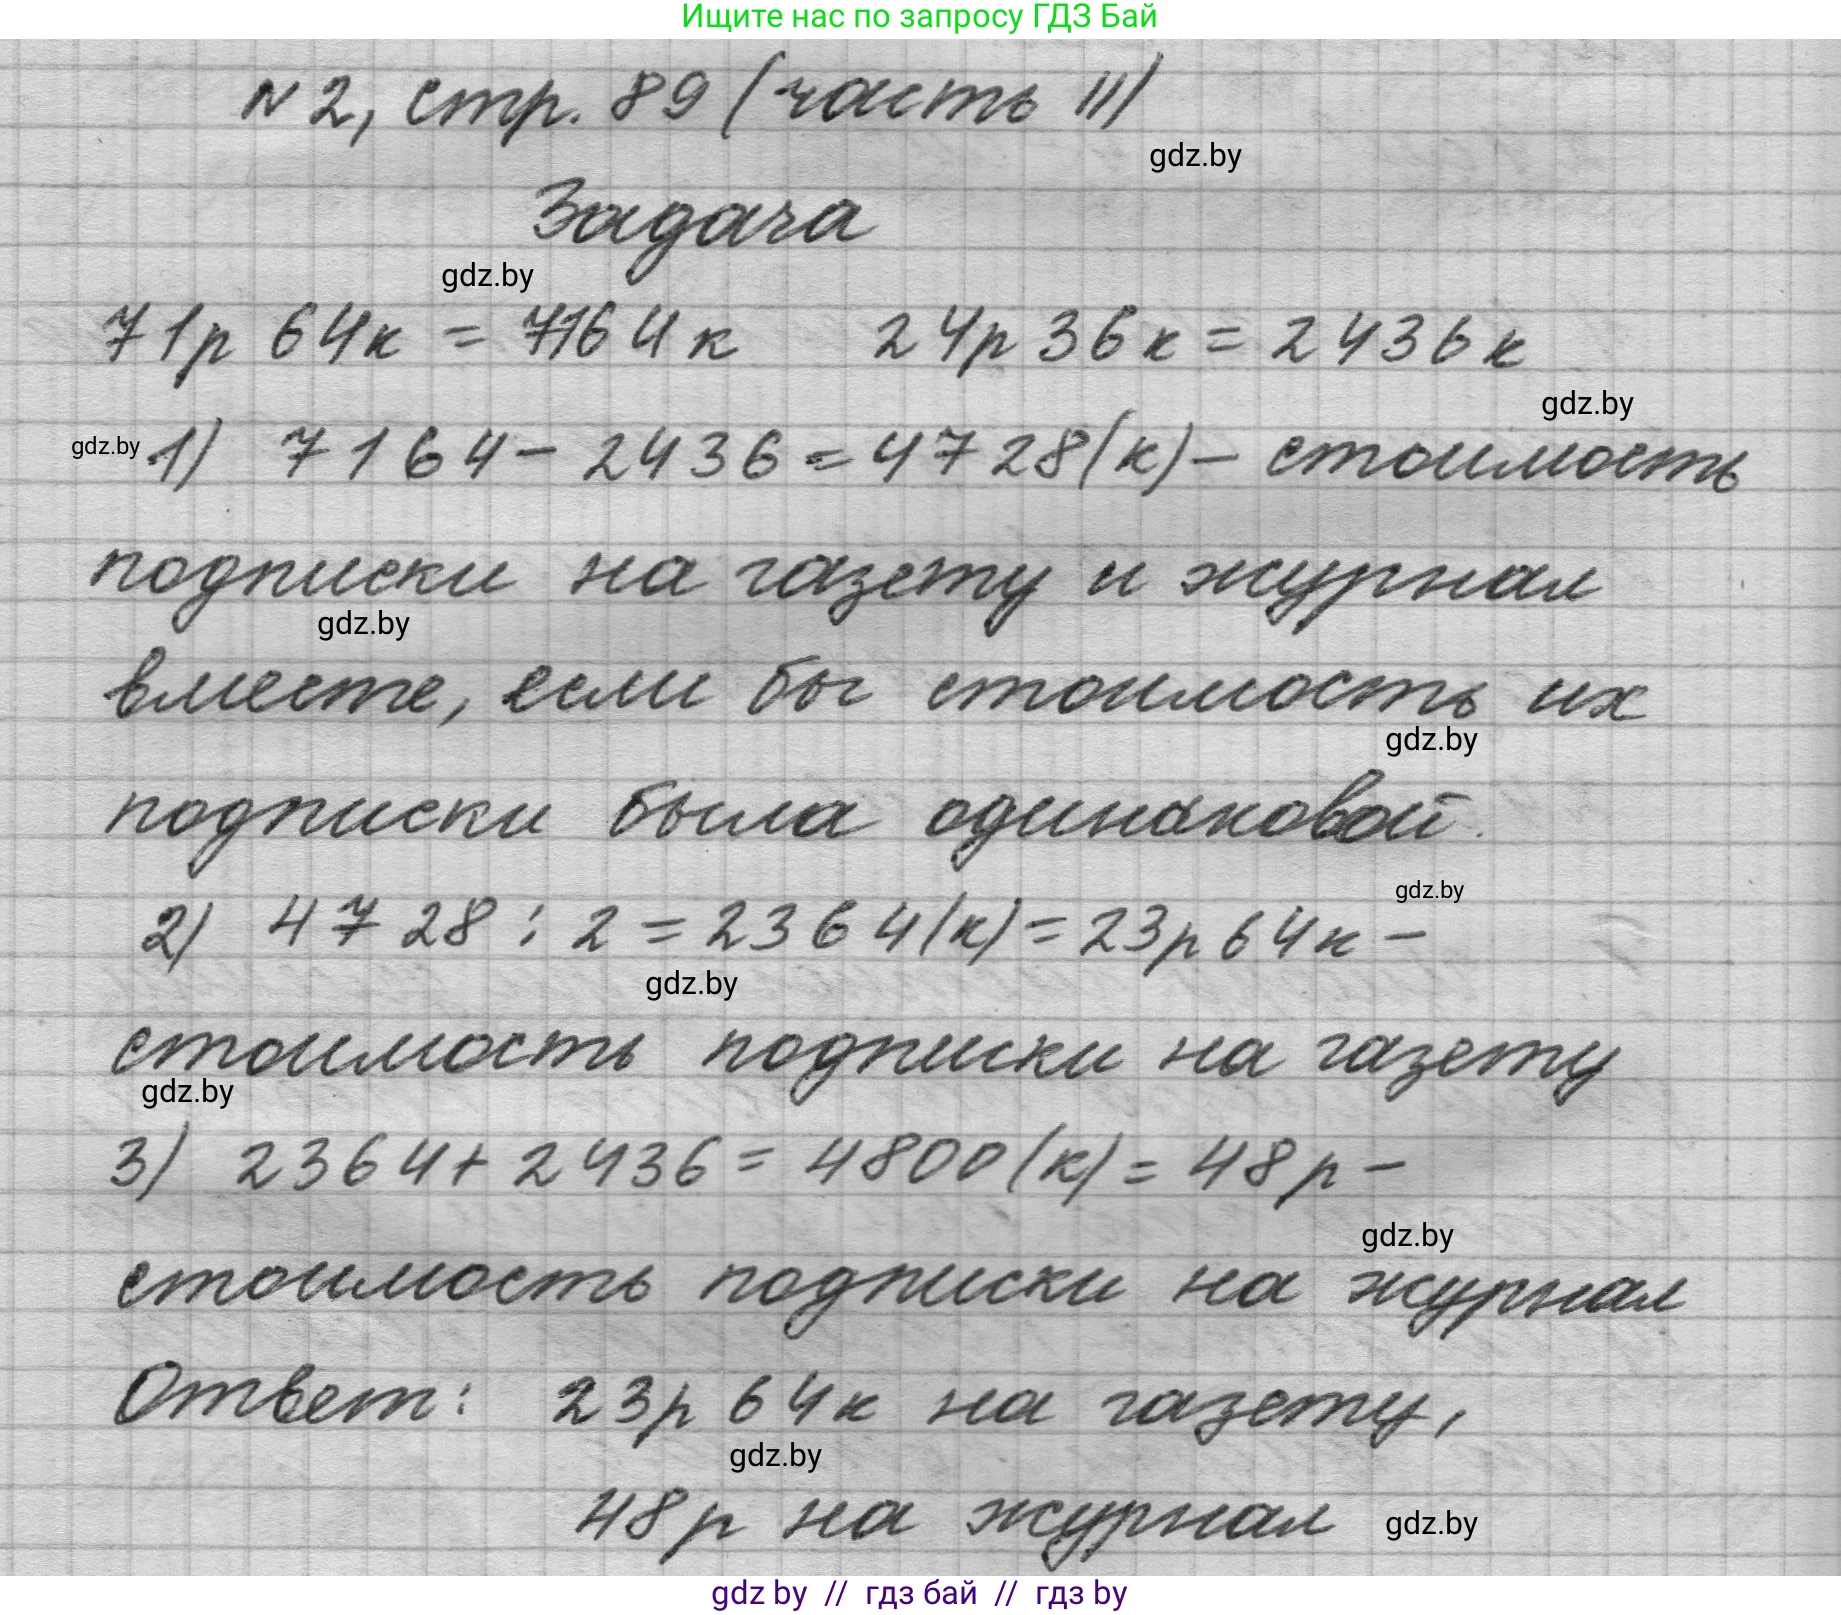 Ищите нас по запросу ГДЗ Бай
N 2, стр. 89 (часть II)
gdz.by
Задача
gdz.by
71р 64к = 7164к 24р 36к = 2436к
gdz.by
gdz.by 1) 7164 - 2436 = 4728(к) - стоимость
подписки на газету и журнал
gdz.by
вместе, если бы стоимость их
gdz.by
подписки была одинаковой.
gdz.by
2) 4728 : 2 = 2364(к) = 23р 64к -
gdz.by
стоимость подписки на газету
gdz.by
3) 2364 + 2436 = 4800(к) = 48р -
gdz.by
стоимость подписки на журнал
Ответ: 23р 64к на газету,
gdz.by
48р на журнал gdz.by
gdz by // гдз бай // гдз by